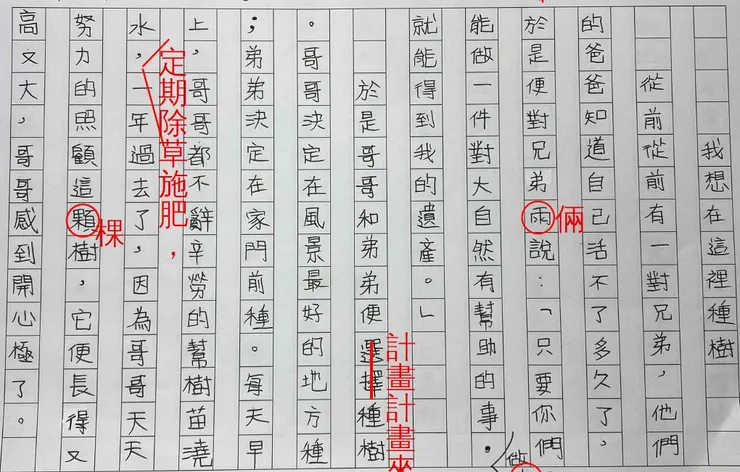 我想在這裡種樹
從前從前有一對兄弟，他們
的爸爸知道自己活不了多久了，
於是便對兄弟兩說：「只要你們
倆
能做一件對大自然有幫助的事，
做
就能得到我的遺產。」
於是哥哥和弟弟便選擇種樹
計畫計畫來
。哥哥決定在風景最好的地方種
；弟弟決定在家門前種。每天早
上，哥哥都不辭辛勞的幫樹苗澆
定期除草施肥，
水，一年過去了，因為哥哥天天
棵
努力的照顧這顆樹，它便長得又
高又大，哥哥感到開心極了。